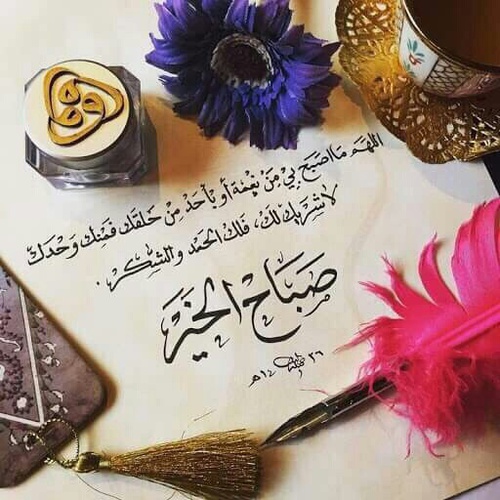 اللهم ما اصبح بي من نعمة أو بأحد من خلقك فمنك وحدك
لا شريك لك، فلك الحمد والشكر.
صباح الخير